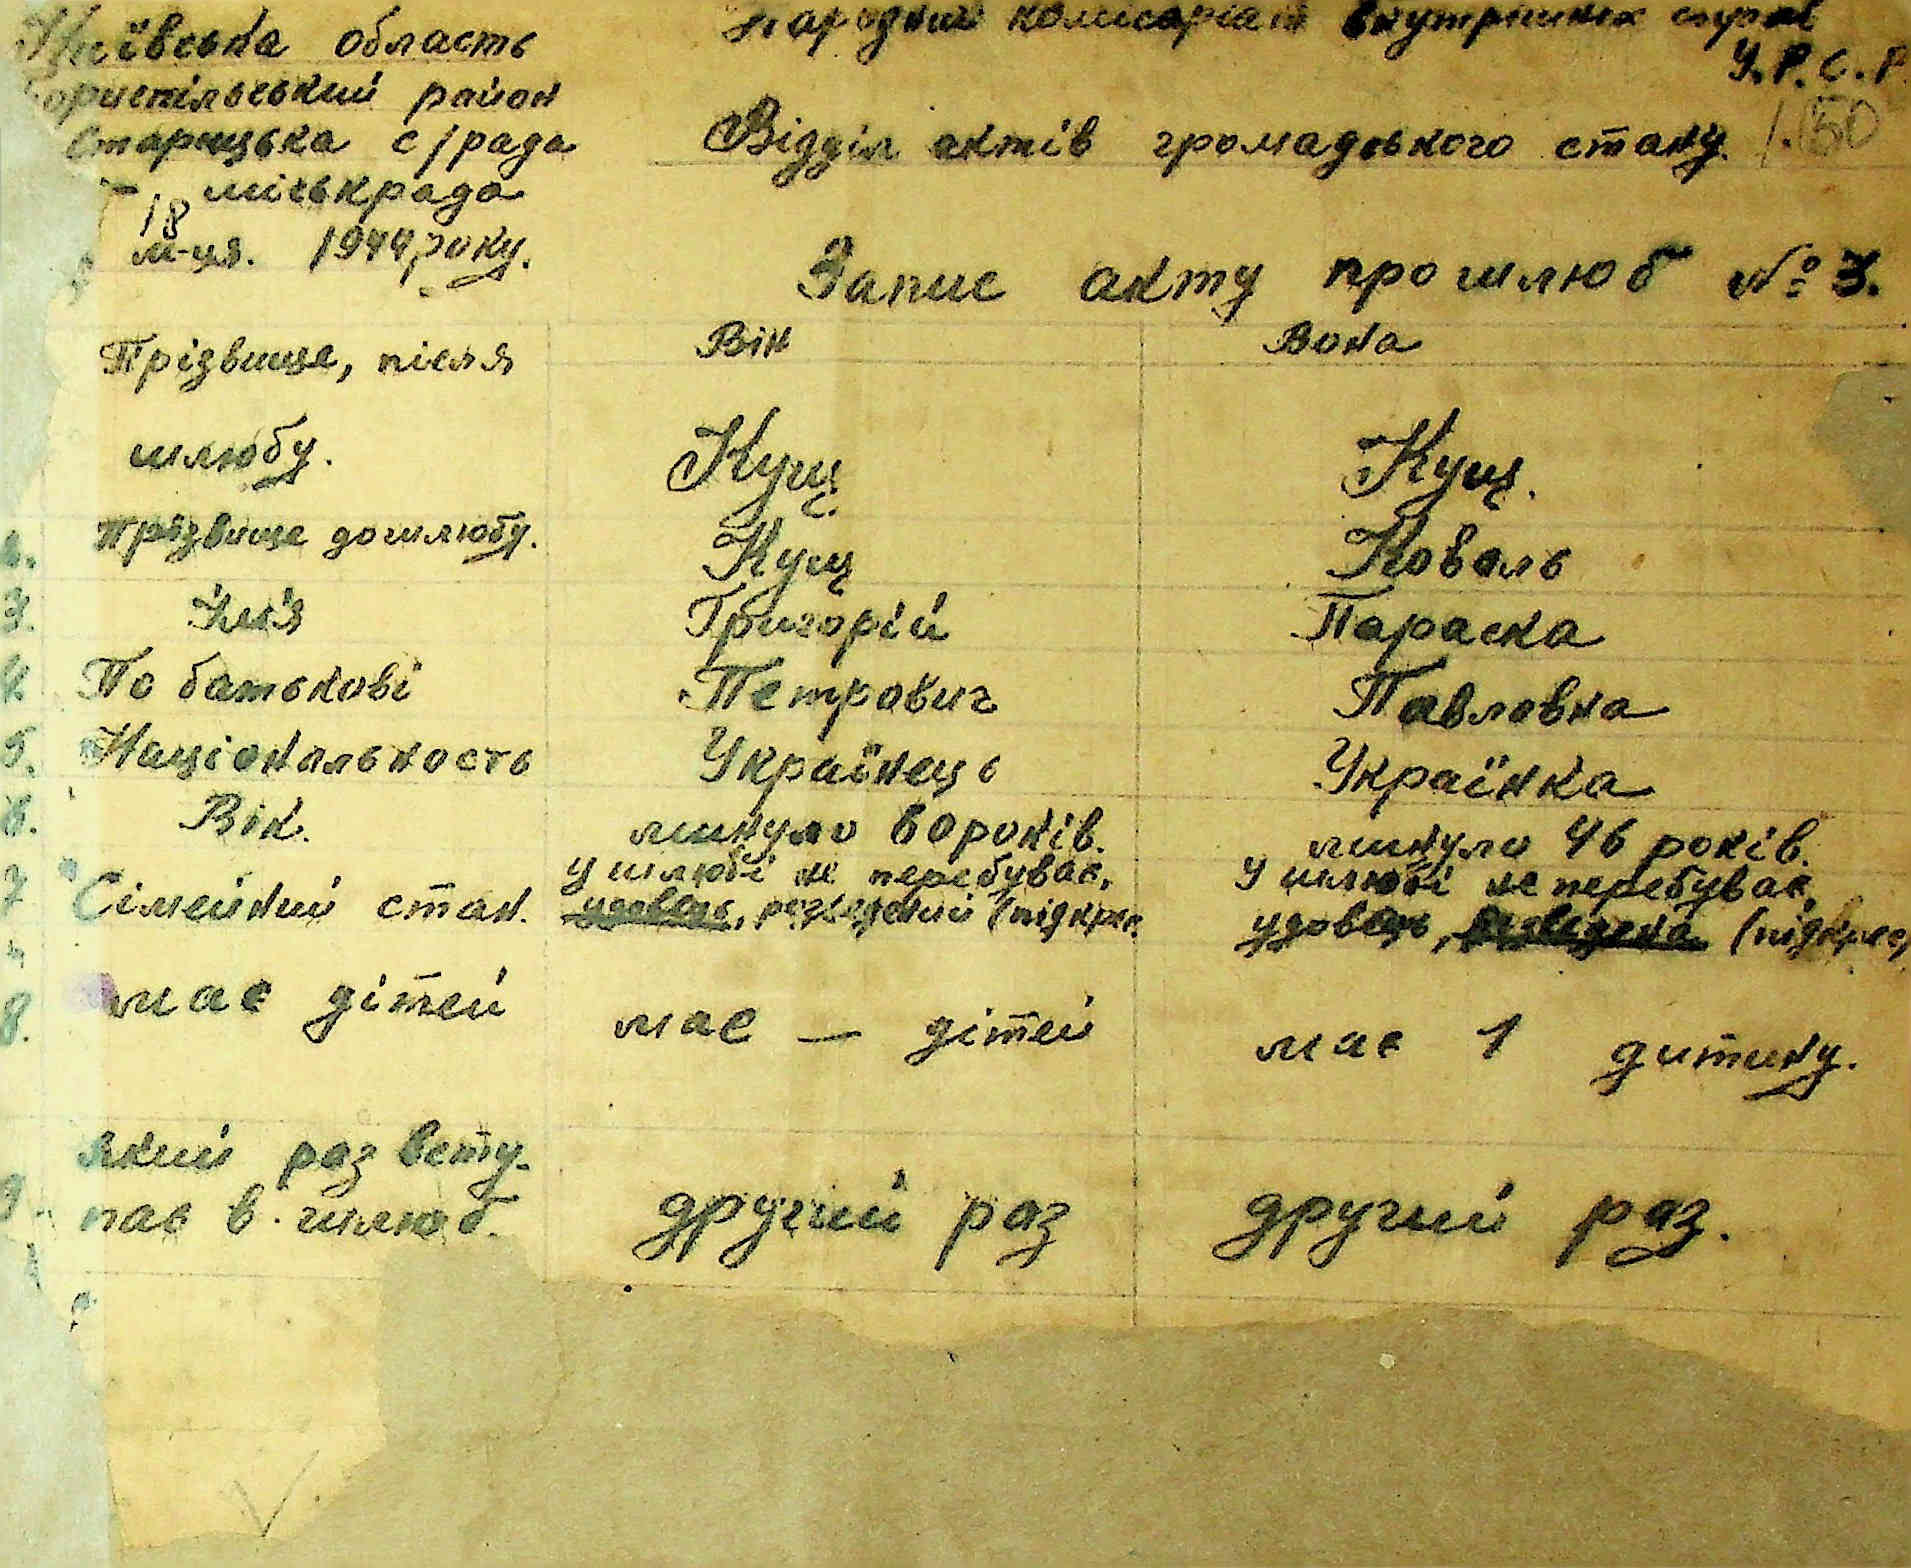 Київська область
Народний комісаріат внутрішніх справ
У.Р.С.Р.
Бориспільський район
Старицька с/рада
Відділ актів громадського стану.
150
— міськрада
18
м-ця. 1944 року.
Запис акту про шлюб № 3.
Прізвище, після шлюбу.
Він
Вона
Кущ
Кущ.
Прізвище до шлюбу.
Кущ
Коваль
3. Ім'я
Григорій
Параска
4. По батькові
Петрович
Павловна
5. Національность
Українець
Українка
6. Вік.
минуло 60 років.
минуло 46 років.
7 Сімейний стан.
у шлюбі не перебуває,
удовець, розведений (підкрес.
у шлюбі не перебуває,
удовець, розведена (підкрес,
8. має дітей
має — дітей
має 1 дитину.
9. який раз всту-
пає в шлюб.
другий раз
другий раз.